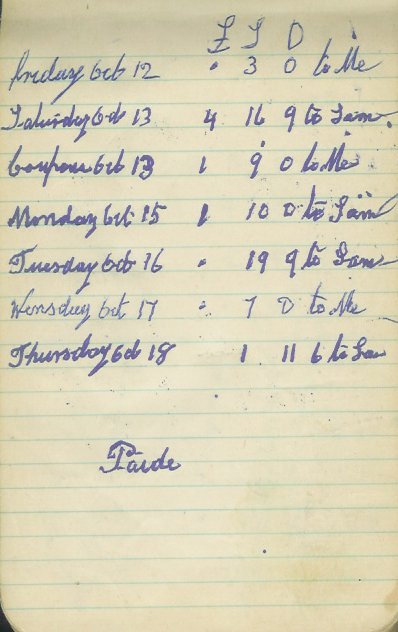 £ S D
Friday Oct 12 " 3 0 to Me
Saturday Oct 13 4 16 9 to Sam.
Coupons Oct 13 1 9 0 to Me
Monday Oct 15 1 10 0 to Sam
Tuesday Oct 16 " 19 9 to Sam
Wensday Oct 17 " 7 0 to Me
Thursday Oct 18 1 11 6 to Sam
Paide